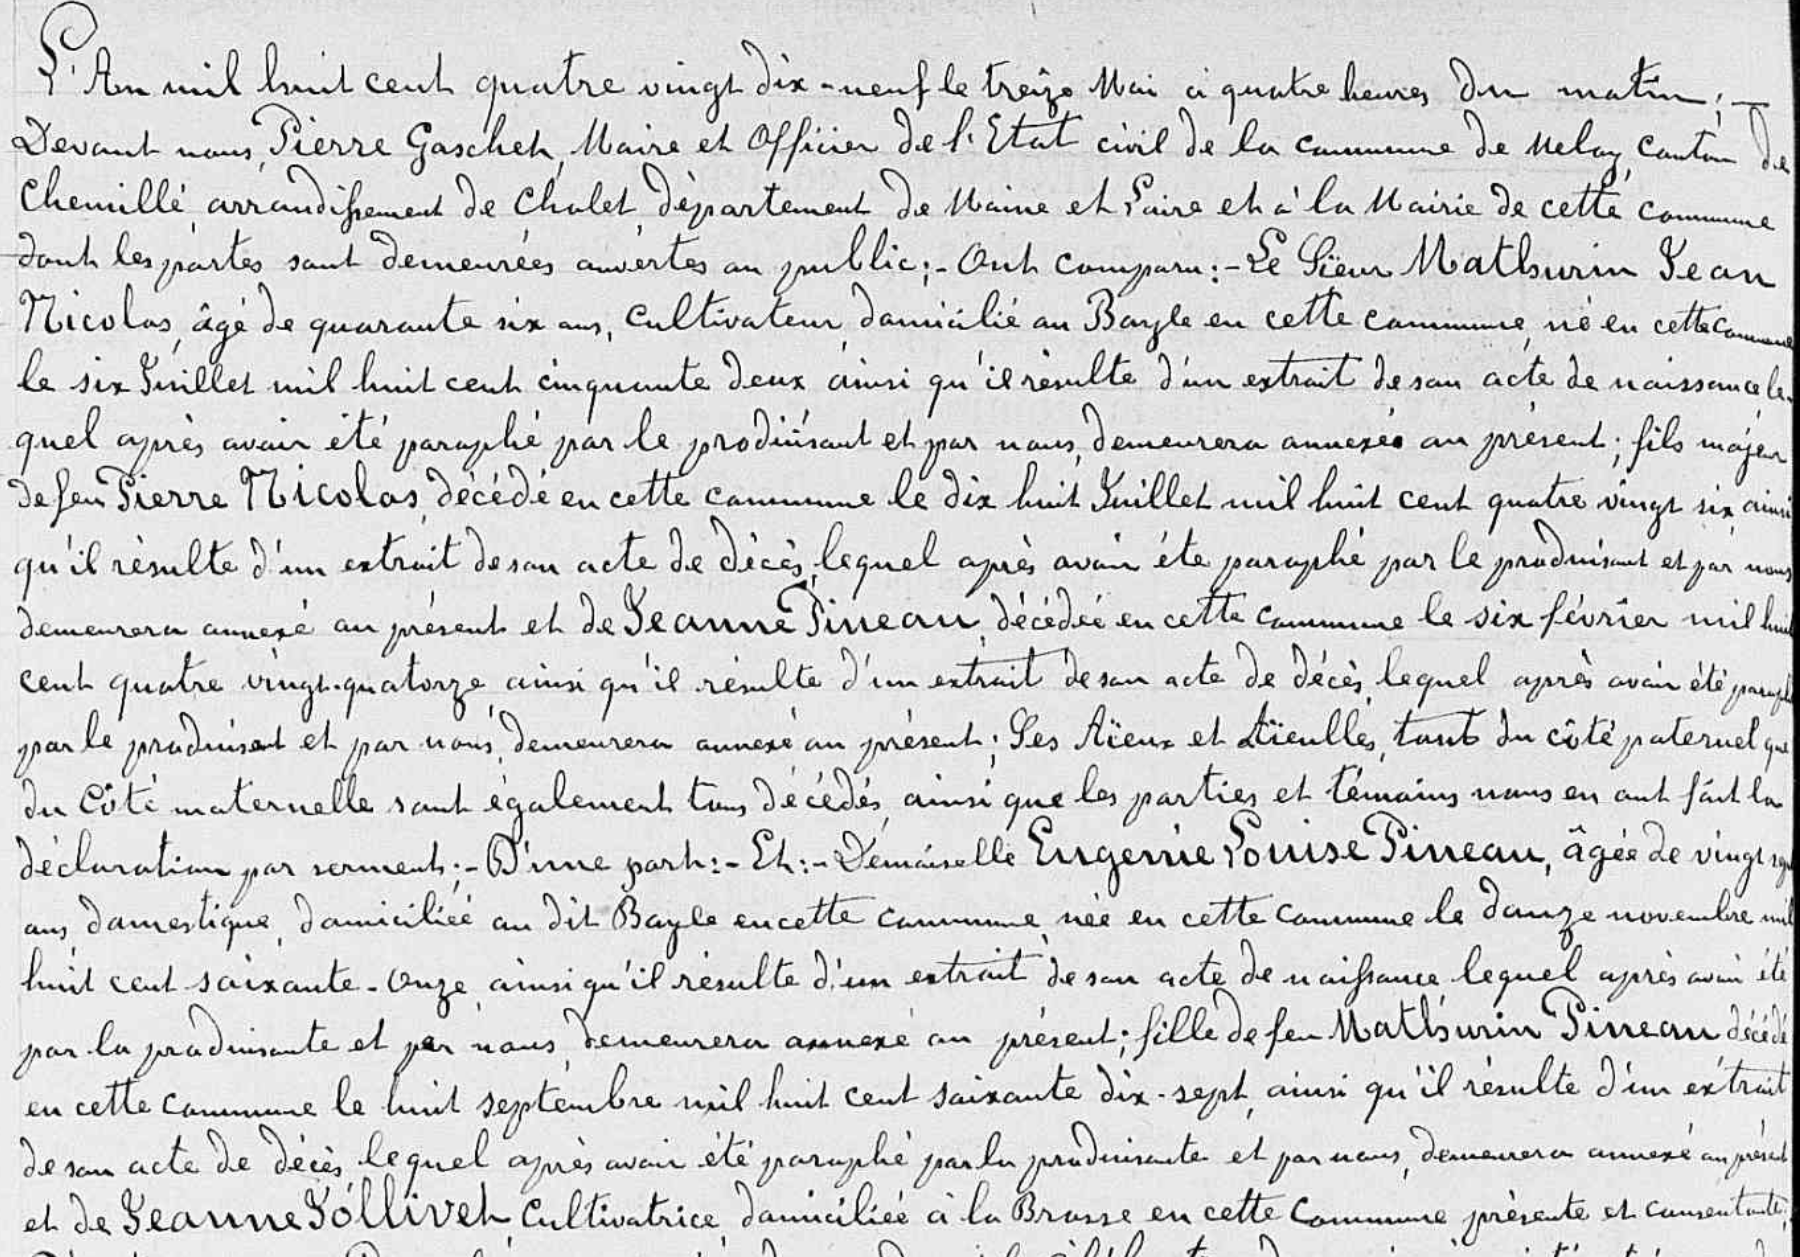 L'An mil huit cent quatre vingt dix-neuf le treize Mai à quatre heures du matin; —
Devant nous, Pierre Gaschet, Maire et Officier de l'Etat civil de la commune de Melay, canton de
Chemillé, arrondissement de Cholet, département de Maine et Loire et à la Mairie de cette commune
dont les portes sont demeurées ouvertes au public; - Ont comparu: - Le Sieur Mathurin Jean
Nicolas, âgé de quarante six ans, cultivateur, domicilié au Bayle en cette commune, né en cette commune
le six Juillet mil huit cent cinquante deux ainsi qu'il résulte d'un extrait de son acte de naissance le-
quel après avoir été paraphé par le produisant et par nous, demeurera annexée au présent; fils majeur
de feu Pierre Nicolas, décédé en cette commune le dix huit Juillet mil huit cent quatre vingt six, ainsi
qu'il résulte d'un extrait de son acte de décès, lequel après avoir été paraphé par le produisant et par nous
demeurera annexé au présent et de Jeanne Pineau, décédée en cette commune le six février mil huit
cent quatre vingt-quatorze, ainsi qu'il résulte d'un extrait de son acte de décès, lequel après avoir été paraphé
par le produisant et par nous, demeurera annexé au présent; Ses Aïeux et Aïeulles, tant du côté paternel que
du Côté maternelle sont également tous décédés, ainsi que les parties et témoins nous en ont fait la
déclaration par serment; - D'une part: - Et: - Demoiselle Eugenie Louise Pineau, âgée de vingt sept
ans, domestique, domiciliée au dit Bayle en cette commune, née en cette commune le douze novembre mil
huit cent soixante-onze, ainsi qu'il résulte d'un extrait de son acte de naissance lequel après avoir été
par la produisante et par nous, demeurera annexé au présent; fille de feu Mathurin Pineau décédé
en cette commune le huit septembre mil huit cent soixante dix-sept, ainsi qu'il résulte d'un extrait
de son acte de décès, lequel après avoir été paraphé par la produisante et par nous, demeurera annexé au présent
et de Jeanne Jollivet, Cultivatrice, domiciliée à la Brosse en cette Commune, présente et consentante;